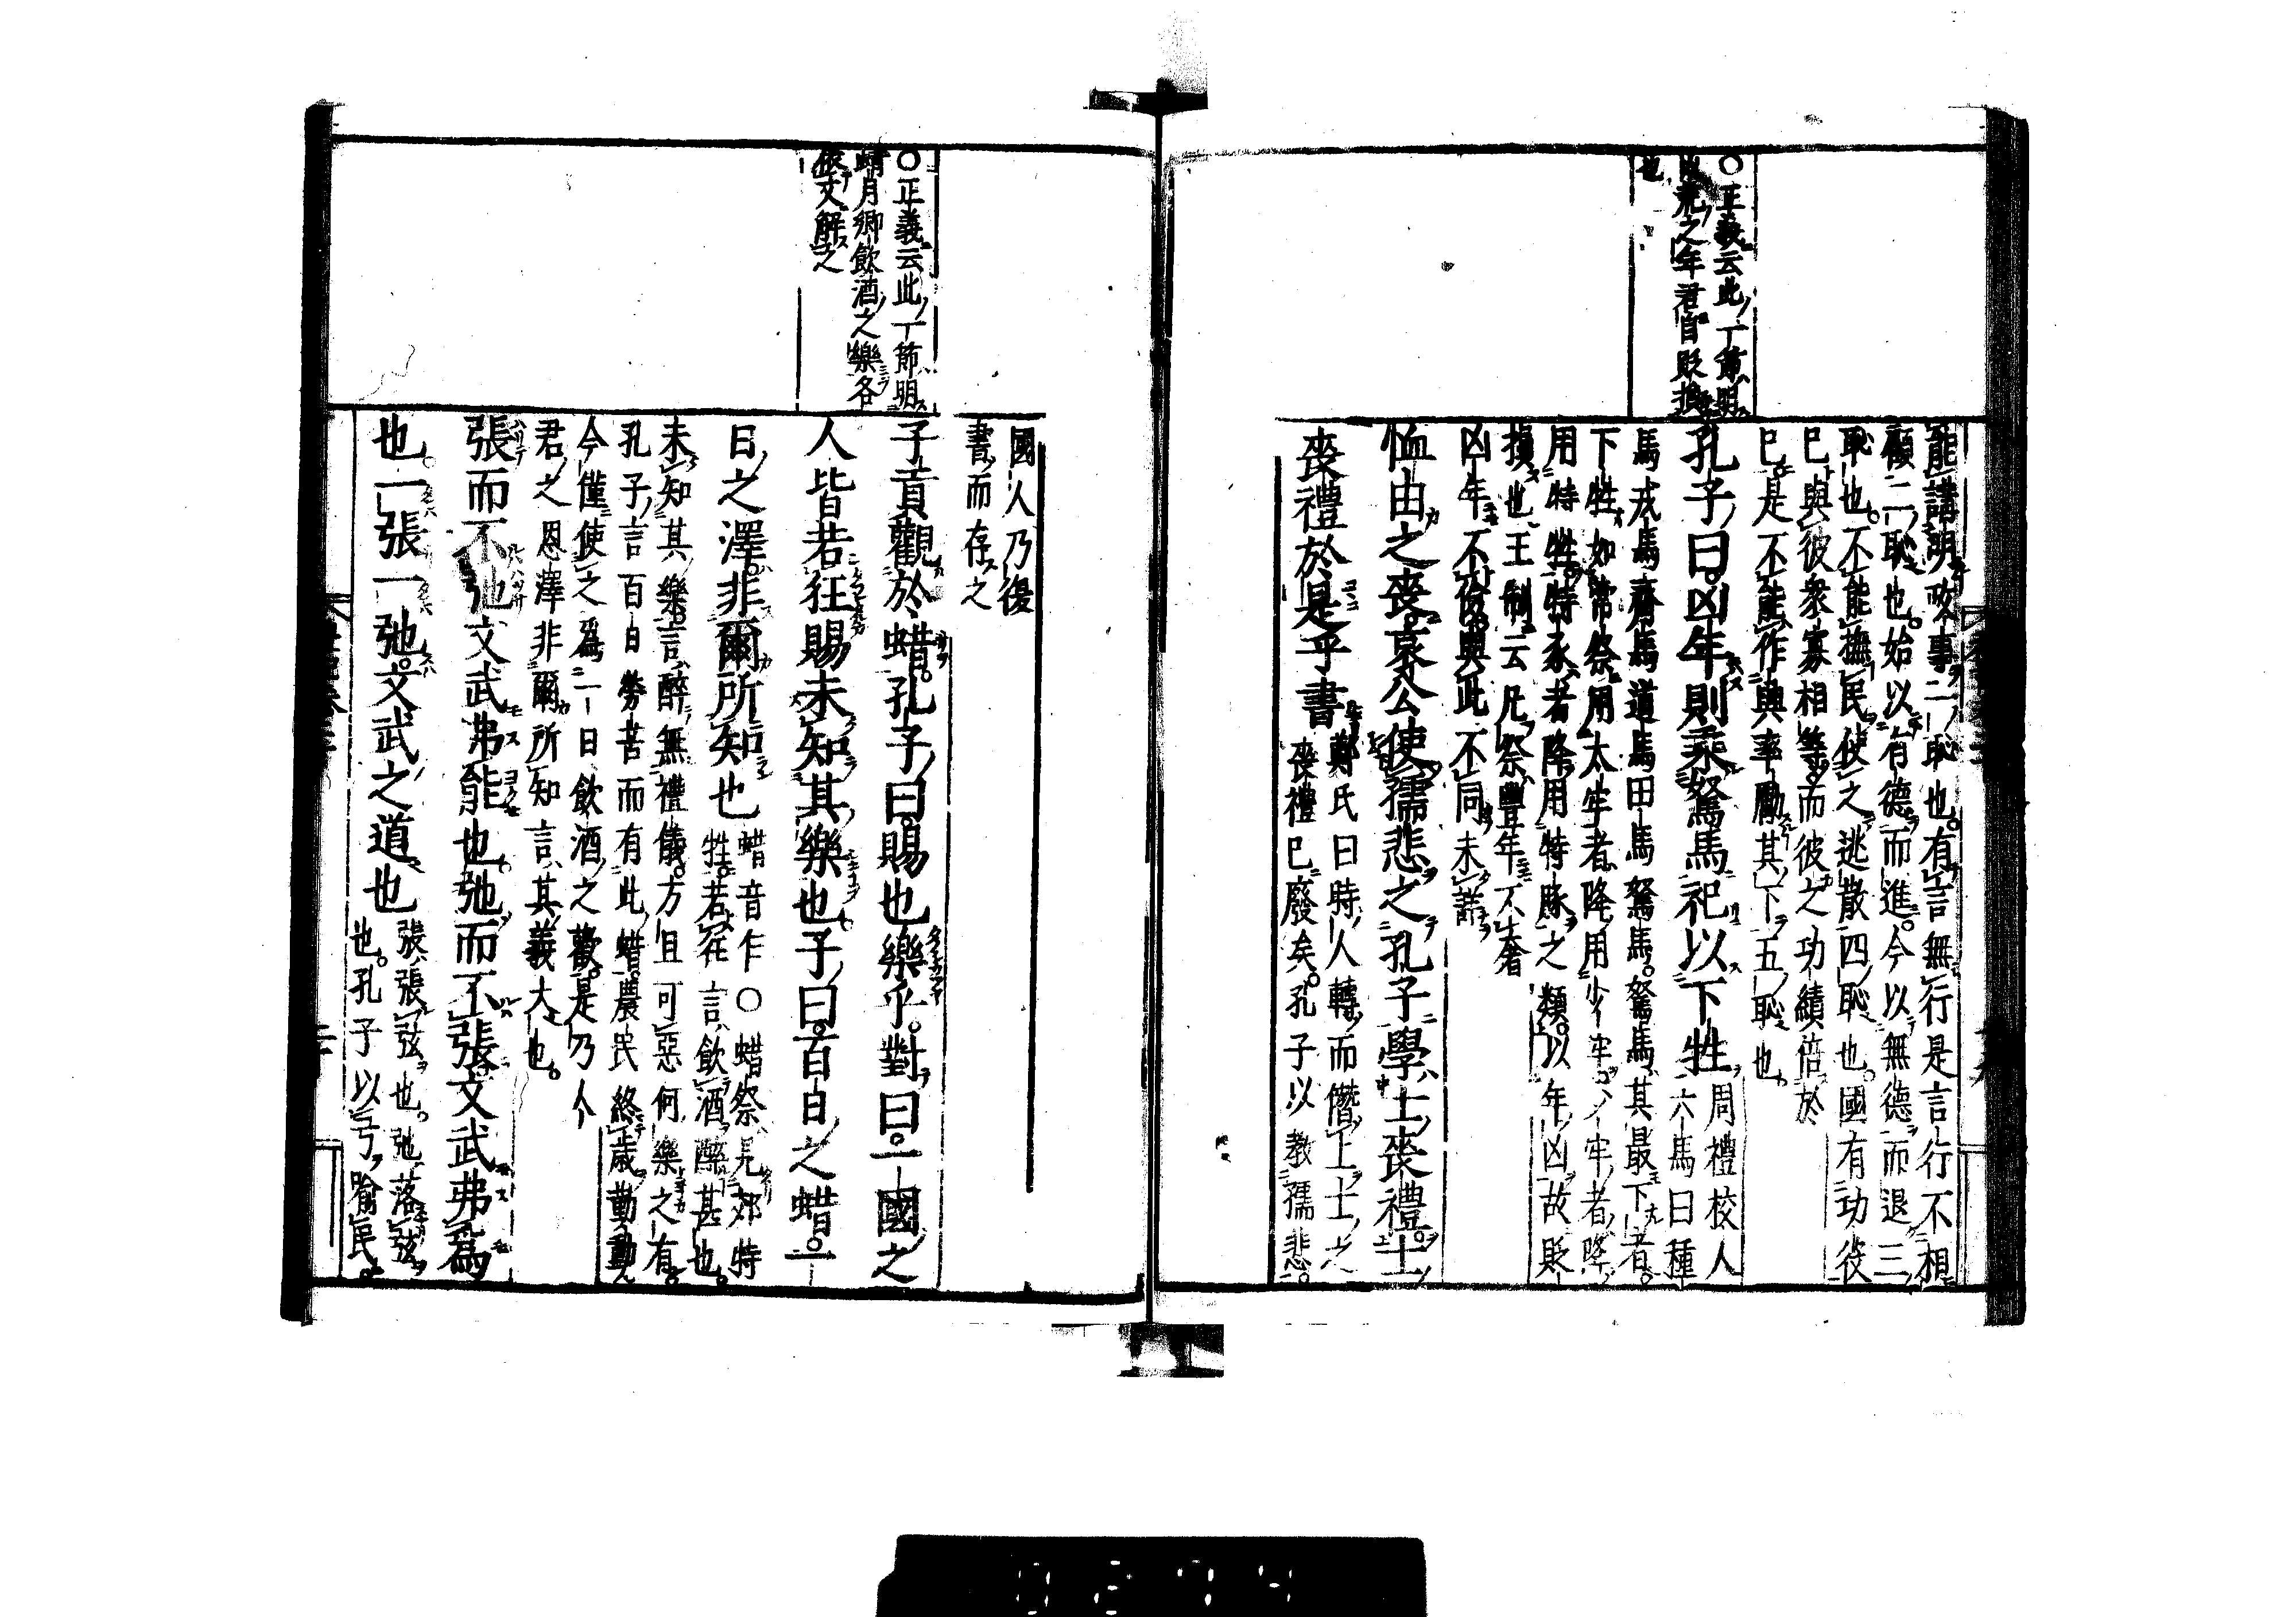 ○正義云此一節明
凶荒之年君自貶損
也
能講明政事二恥也有言無行是言行不相
顧二恥也始以有德而進今以無德而退三
恥也不能撫民使之逃散四恥也國有功役
已與彼衆寡相等而彼之功績倍於
已是不能作興率勵其下五恥也
孔子曰凶年則乘駑馬祀以下牲周禮校人
六馬曰種
馬戎馬齊馬道馬田馬駑馬駑馬其最下者
下牲如常祭用太牢者降用少牢少牢者降
用特牲特豕者降用特豚之類以年凶故貶
損也王制云凡祭豐年不奢
凶年不儉與此不同未詳
恤由之喪哀公使孺悲之孔子學士喪禮士
喪禮於是乎書鄭氏曰時人轉而僭上士之
喪禮已廢矣孔子以教孺悲
國人乃復
書而存之
○正義云此一節明
蜡月鄉飲酒之樂各
依文解之
子貢觀於蜡孔子曰賜也樂乎對曰一國之
人皆若狂賜未知其樂也子曰百日之蜡一
日之澤非爾所知也蜡音乍○蜡祭見郊特
牲若狂言飲酒醉甚也
未知其樂言醉無禮儀方且可惡何樂之有
孔子言百日勞苦而有此蜡農民終歲勤動
今僅使之爲一日飲酒之歡是乃人
君之恩澤非爾所知言其義大也
張而不弛文武弗能也弛而不張文武弗爲
也一張一弛文武之道也張張弦也弛落弦
也孔子以弓喻民